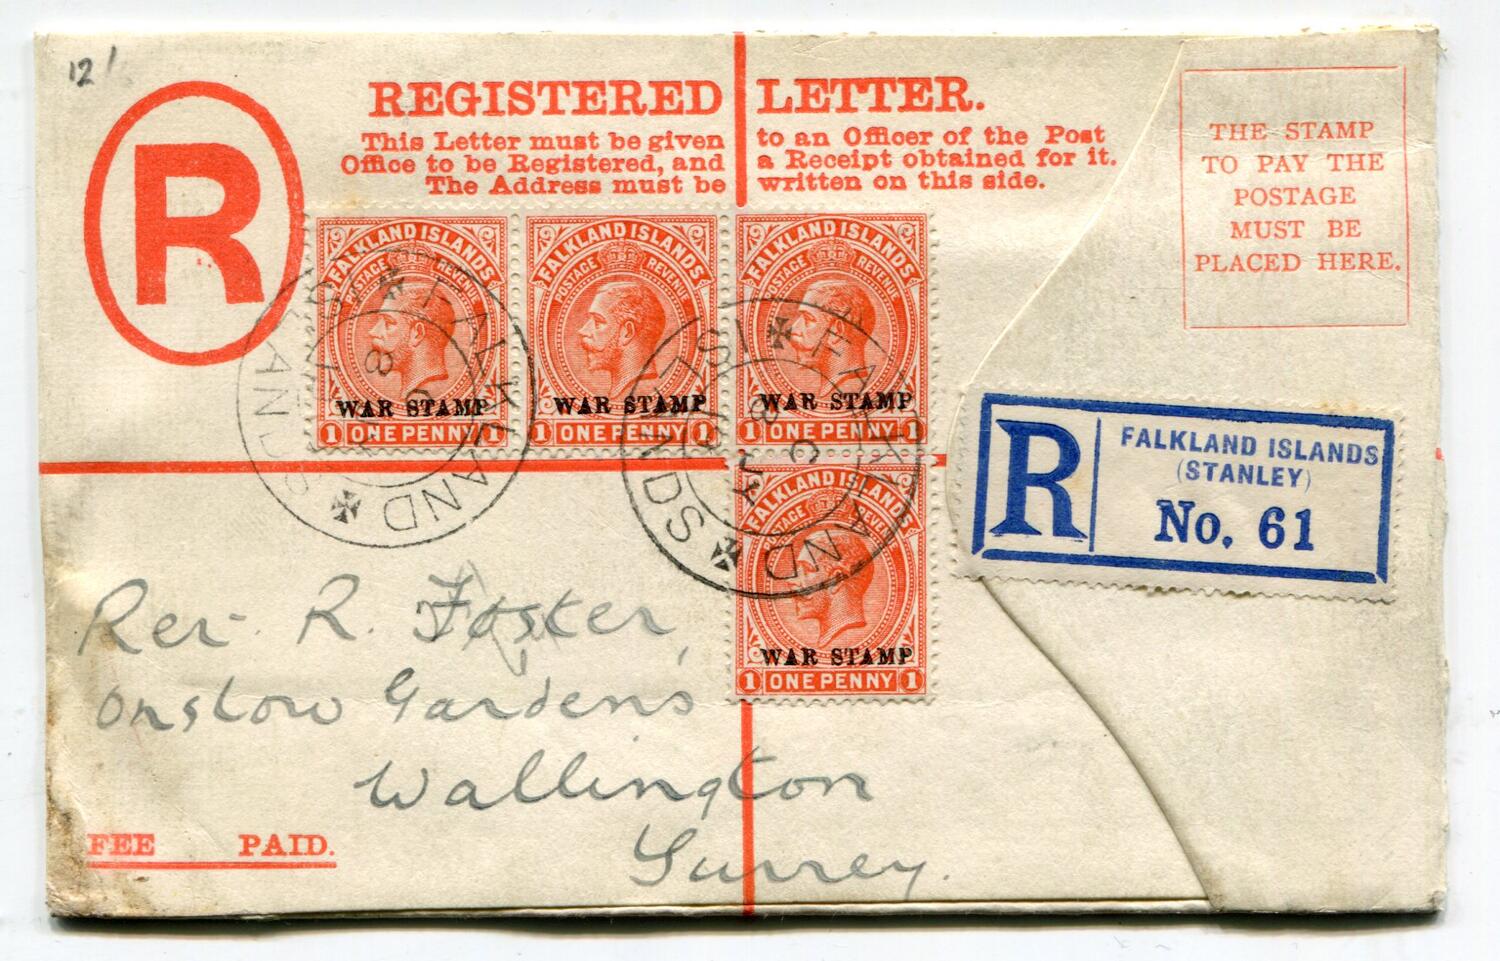 12/
R
REGISTERED LETTER.
This Letter must be given to an Officer of the Post
Office to be Registered, and a Receipt obtained for it.
The Address must be written on this side.
THE STAMP
TO PAY THE
POSTAGE
MUST BE
PLACED HERE.
FALKLAND ISLANDS
POSTAGE REVENUE
WAR STAMP
1 ONE PENNY 1
FALKLAND ISLANDS
POSTAGE REVENUE
WAR STAMP
1 ONE PENNY 1
FALKLAND ISLANDS
POSTAGE REVENUE
WAR STAMP
1 ONE PENNY 1
FALKLAND ISLANDS
POSTAGE REVENUE
WAR STAMP
1 ONE PENNY 1
FALKLAND ISLANDS
FALKLAND ISLANDS
R
FALKLAND ISLANDS
(STANLEY)
No. 61
Rev. R. Foster,
Onslow Gardens
Wallington
Surrey.
FEE PAID.